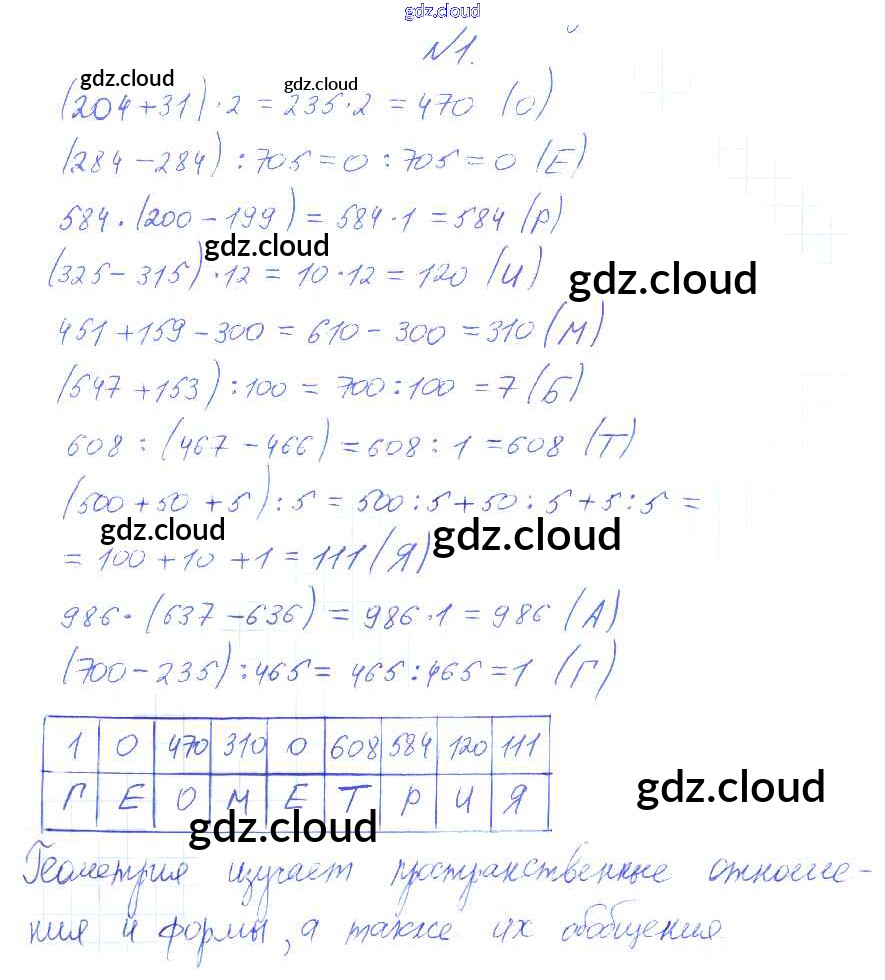 gdz.cloud
№1.
gdz.cloud gdz.cloud
(204+31)·2=235·2=470 (О)
(284-284):705=0:705=0 (Е)
584·(200-199)=584·1=584 (Р)
gdz.cloud
(325-315)·12=10·12=120 (И)
gdz.cloud
451+159-300=610-300=310 (М)
(547+153):100=700:100=7 (Б)
608:(467-466)=608:1=608 (Т)
(500+50+5):5=500:5+50:5+5:5=
gdz.cloud gdz.cloud
=100+10+1=111 (Я)
986·(637-636)=986·1=986 (А)
(700-235):465=465:465=1 (Г)
1 0 470 310 0 608 584 120 111
Г Е О М Е Т Р И Я
gdz.cloud
gdz.cloud
Геометрия изучает пространственные отноше-
ния и формы, а также их обобщения